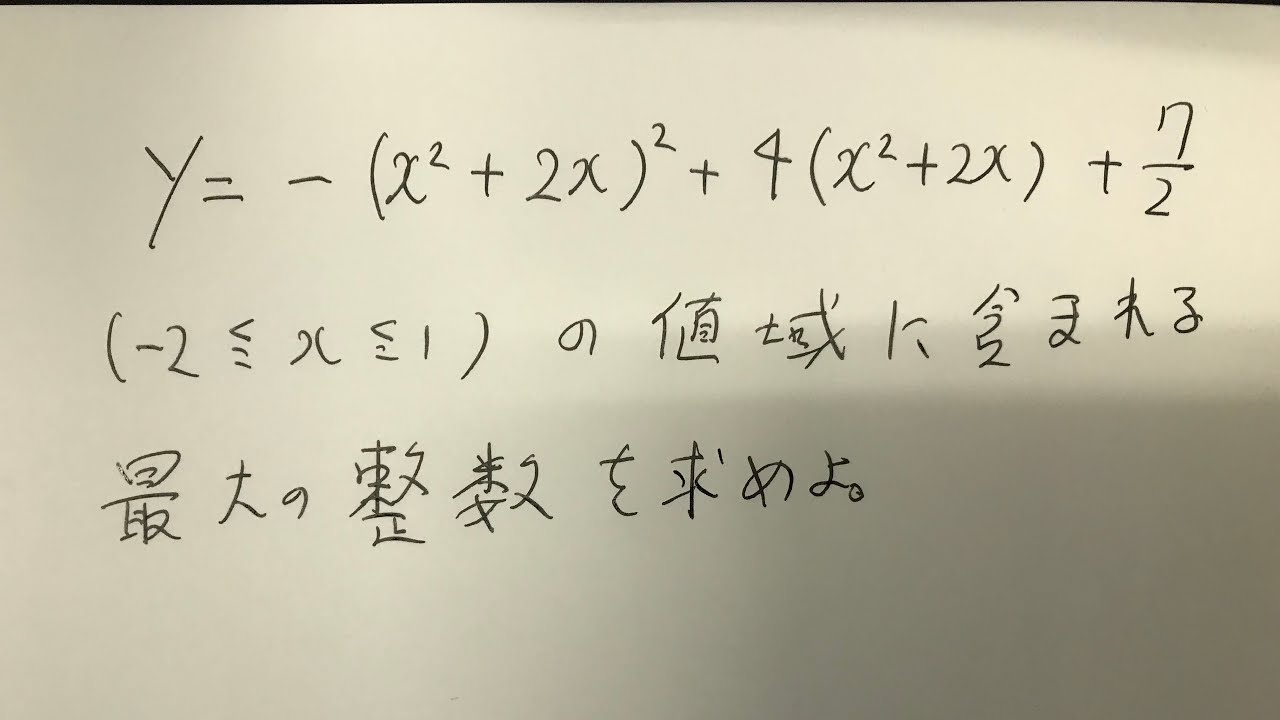 y = - (x² + 2x)² + 4(x² + 2x) + 7/2
(-2 ≦ x ≦ 1) の値域に含まれる
最大の整数を求めよ。